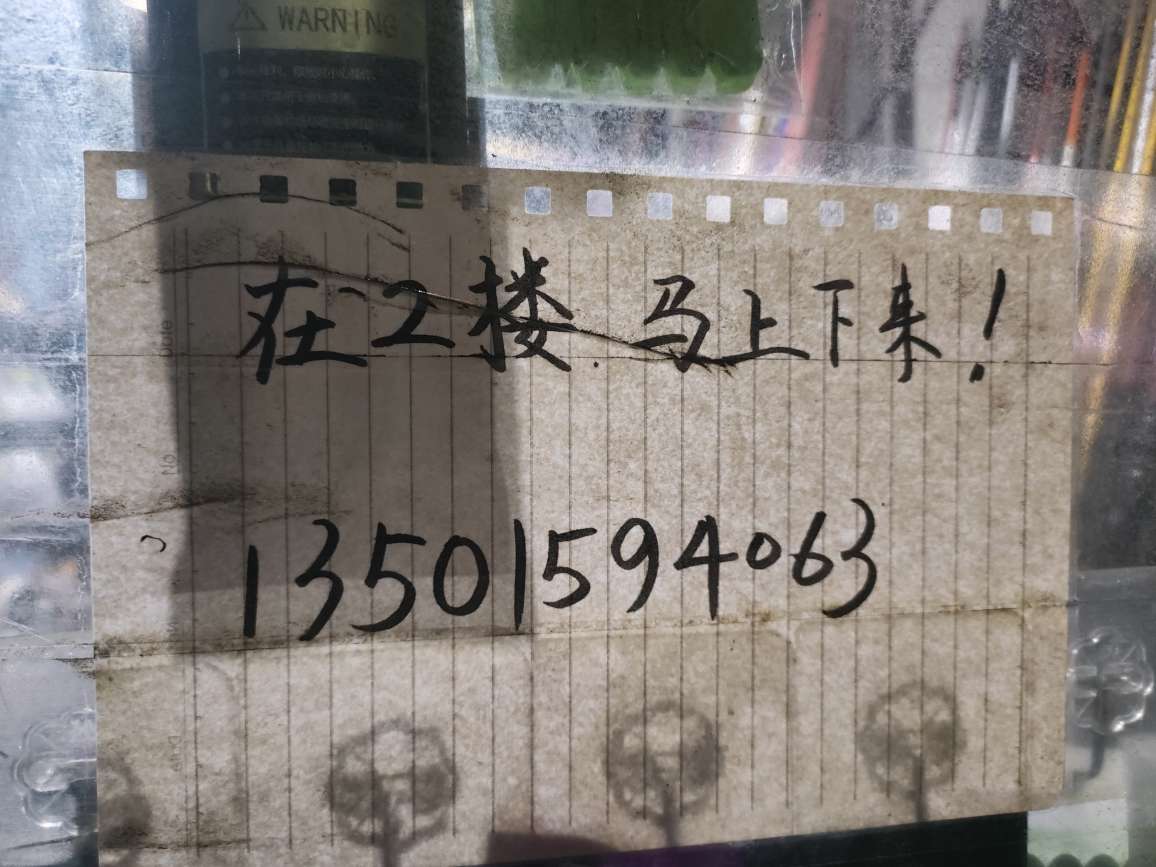 WARNING
在2楼.马上下来!
13501594063
No